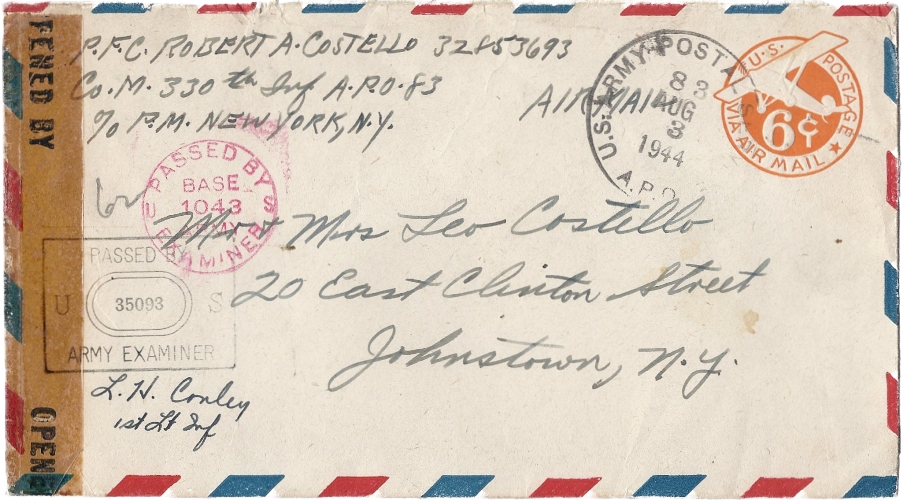 P.F.C. ROBERT A. COSTELLO 32853693
Co. M. 330th Inf A.P.O. 83
c/o P.M. NEW YORK, N.Y.
AIR MAIL
U.S. ARMY POSTAL
83
AUG
3
1944
A.P.O.
U.S. POSTAGE
6¢
VIA AIR MAIL
PASSED BY
BASE
1043
ARMY
EXAMINER
U S
Mr + Mrs Leo Costello
20 East Clinton Street
Johnstown, N.Y.
PASSED BY
U 35093 S
ARMY EXAMINER
L. H. Conley
1st Lt Inf
OPENED BY